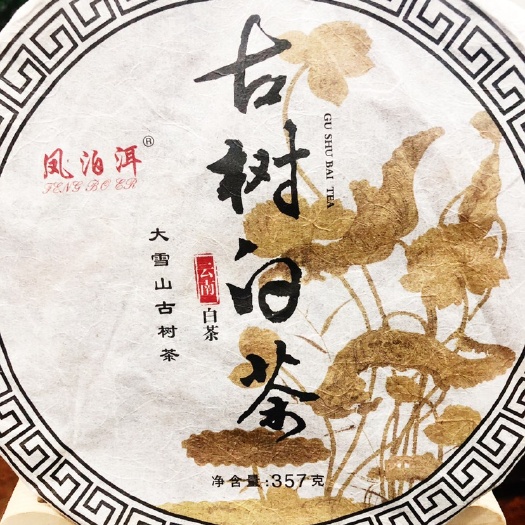 古树白茶
GU SHU BAI TEA
凤泊洱®
FENG BO ER
大雪山古树茶
云南
白茶
净含量:357克